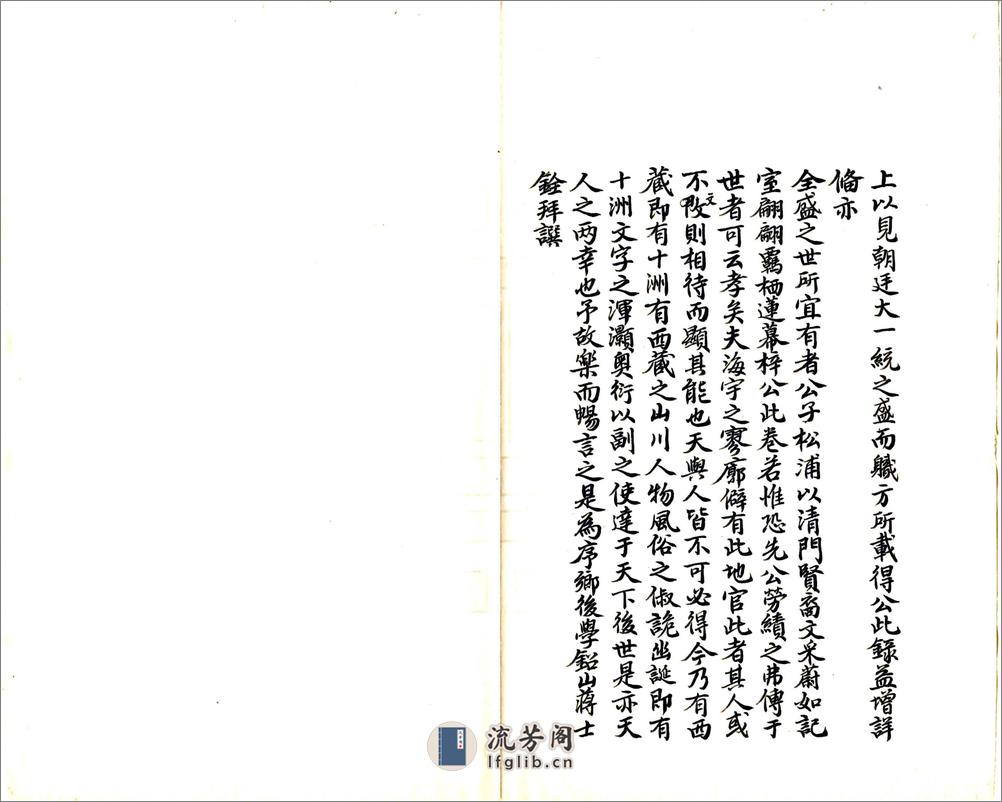 上以見朝廷大一統之盛而職方所載得公此錄益增詳
備亦
全盛之世所宜有者公子松浦以清門賢裔文采蔚如記
室翩翩羁栖蓮幕梓公此卷若惟恐先公勞績之弗傳于
世者可云孝矣夫海宇之寥廓僻有此地官此者其人或
不文則相待而顯其能也天與人皆不可必得今乃有西
藏即有十洲有西藏之山川人物風俗之俶詭幽誕即有
十洲文字之渾灝奥衍以副之使達于天下後世是亦天
人之两幸也予故樂而暢言之是為序鄉後學鉛山蔣士
銓拜譔
流芳阁
lfglib.cn